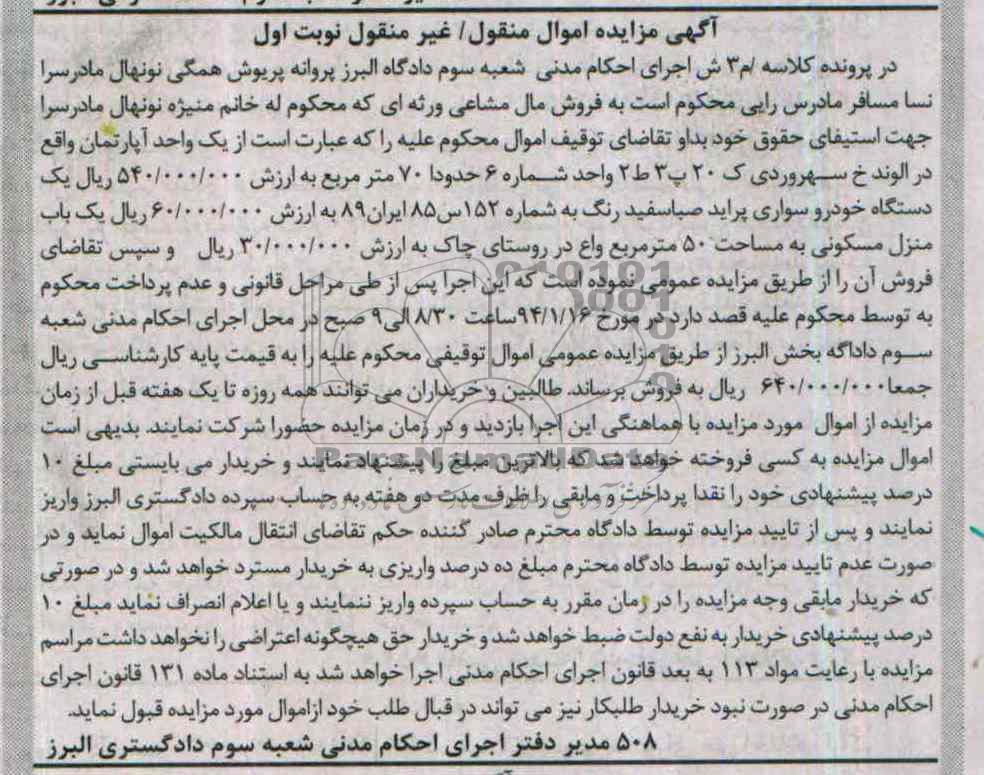 آگهی مزایده اموال منقول/ غیر منقول نوبت اول
در پرونده کلاسه /م۳ ش اجرای احکام مدنی شعبه سوم دادگاه البرز پروانه پریوش همگی نونهال مادرسرا
نسا مسافر مادرس رایی محکوم است به فروش مال مشاعی ورثه ای که محکوم له خانم منیژه نونهال مادرسرا
جهت استیفای حقوق خود بداو تقاضای توقیف اموال محکوم علیه را که عبارت است از یک واحد آپارتمان واقع
در الوند خ سهروردی ک ۲۰ پ۳ ط۲ واحد شماره ۶ حدودا ۷۰ متر مربع به ارزش ۵۴۰/۰۰۰/۰۰۰ ریال یک
دستگاه خودرو سواری پراید صباسفید رنگ به شماره ۱۵۲س۸۵ ایران۸۹ به ارزش ۶۰/۰۰۰/۰۰۰ ریال یک باب
منزل مسکونی به مساحت ۵۰ مترمربع واع در روستای چاک به ارزش ۳۰/۰۰۰/۰۰۰ ریال و سپس تقاضای
فروش آن را از طریق مزایده عمومی نموده است که این اجرا پس از طی مراحل قانونی و عدم پرداخت محکوم
به توسط محکوم علیه قصد دارد در مورخ ۹۴/۱/۱۶ساعت ۸/۳۰ الی۹ صبح در محل اجرای احکام مدنی شعبه
سوم داداگه بخش البرز از طریق مزایده عمومی اموال توقیفی محکوم علیه را به قیمت پایه کارشناسی ریال
جمعا۶۴۰/۰۰۰/۰۰۰ ریال به فروش برساند. طالبین و خریداران می توانند همه روزه تا یک هفته قبل از زمان
مزایده از اموال مورد مزایده با هماهنگی این اجرا بازدید و در زمان مزایده حضورا شرکت نمایند. بدیهی است
اموال مزایده به کسی فروخته خواهد شد که بالاترین مبلغ را پیشنهاد نمایند و خریدار می بایستی مبلغ ۱۰
درصد پیشنهادی خود را نقدا پرداخت و مابقی را ظرف مدت دو هفته به حساب سپرده دادگستری البرز واریز
نمایند و پس از تایید مزایده توسط دادگاه محترم صادر گننده حکم تقاضای انتقال مالکیت اموال نماید و در
صورت عدم تایید مزایده توسط دادگاه محترم مبلغ ده درصد واریزی به خریدار مسترد خواهد شد و در صورتی
که خریدار مابقی وجه مزایده را در زمان مقرر به حساب سپرده واریز ننمایند و یا اعلام انصراف نماید مبلغ ۱۰
درصد پیشنهادی خریدار به نفع دولت ضبط خواهد شد و خریدار حق هیچگونه اعتراضی را نخواهد داشت مراسم
مزایده با رعایت مواد ۱۱۳ به بعد قانون اجرای احکام مدنی اجرا خواهد شد به استناد ماده ۱۳۱ قانون اجرای
احکام مدنی در صورت نبود خریدار طلبکار نیز می تواند در قبال طلب خود ازاموال مورد مزایده قبول نماید.
۵۰۸ مدیر دفتر اجرای احکام مدنی شعبه سوم دادگستری البرز